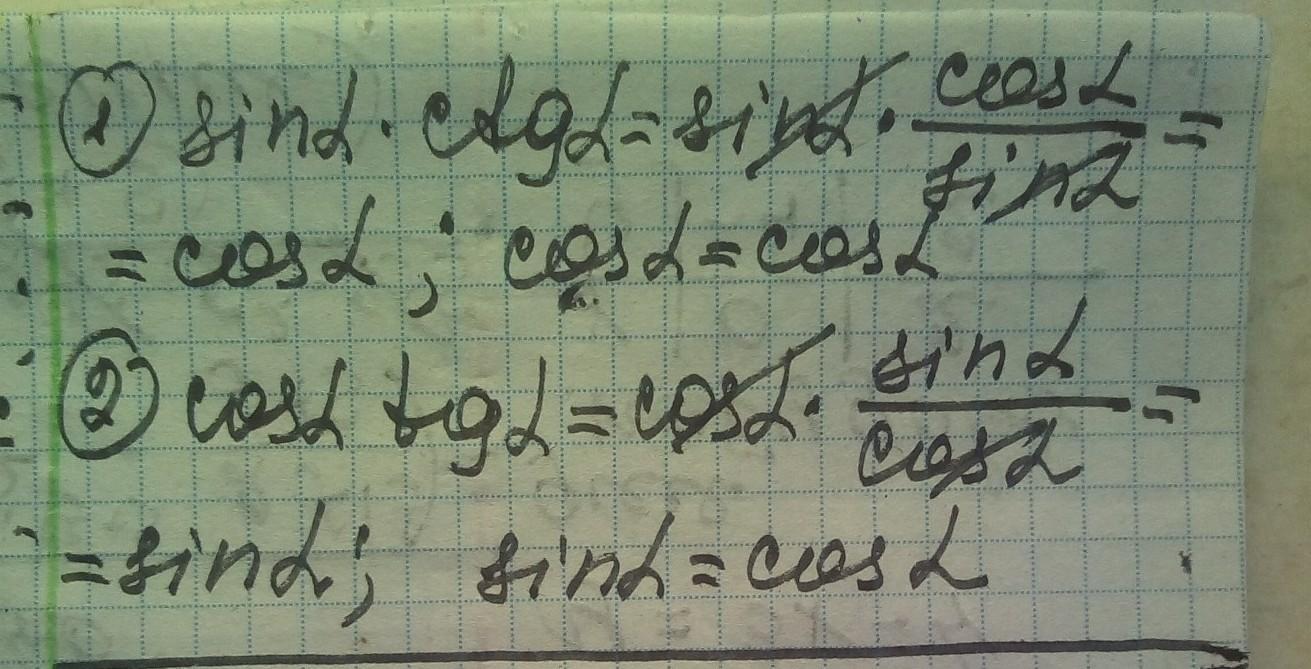 ① sinα · ctgα = sinα · cosα/sinα =
= cosα ; cosα = cosα
② cosα tgα = cosα · sinα/cosα =
= sinα ; sinα = cosα